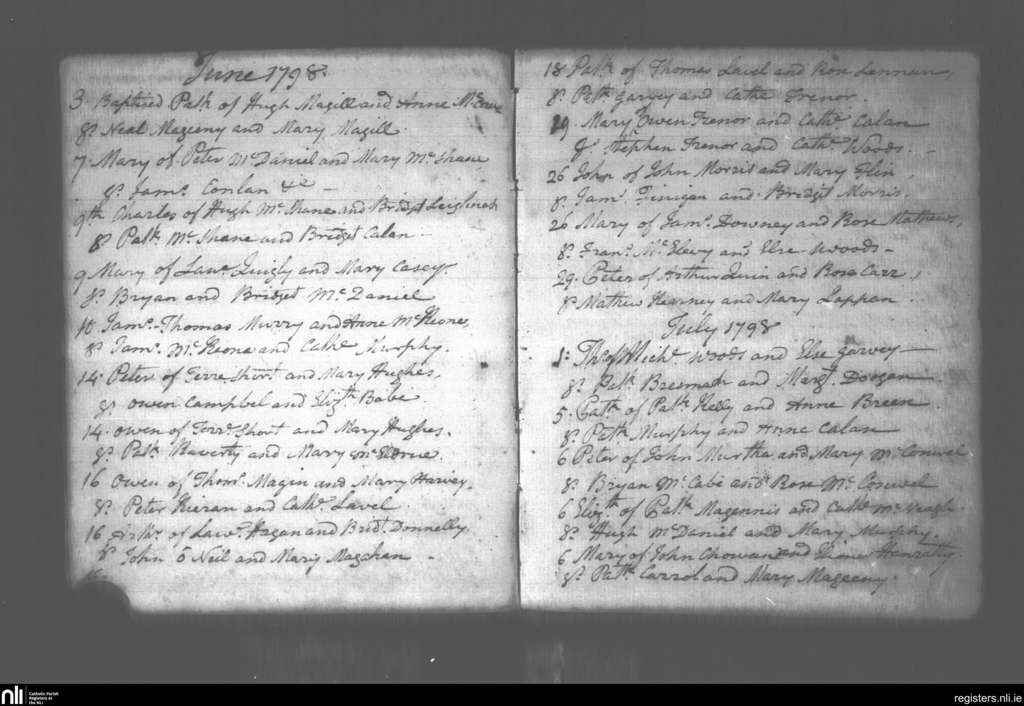 June 1798.
3. Baptised Patk. of Hugh Magill and Anne McCrue
Sp. Neal Mageeny and Mary Magill.
7. Mary of Peter McDaniel and Mary McShane
Sp. Jams. Conlan &c
9th Charles of Hugh McShane and Bridget
Sp. Patk. McShane and Bridget Calan.
9 Mary of Lawe. Quigly and Mary Casey.
Sp. Bryan and Bridget McDaniel
10 Jams. Thomas Murry and Anne McKeone,
Sp. Jams. McKeone and Cathe. Murphy.
14. Peter of Terre. Short and Mary Hughes,
Sp. Owen Campbel and Elizth. Babe.
14. Owen of Terre. Short and Mary Hughes.
Sp. Patk. Haverty and Mary
16 Owen of Thoms. Magin and Mary Harvey.
Sp. Peter Kieran and Cathe. Lavel.
16 Arthr. of Lawe. Hagan and Bridt. Donnelly.
Sp. John ō Neil and Mary Magahan
18 Patk. of Thomas Lavel and Rose Lennan,
Sp. Patk. Garvey and Cathe. Trenor.
19. Mary Owen Trenor and Cathe. Calan
Sp. Stephen Trenor and Cathe. Woods.
26 John of John Morris and Mary Glin,
Sp. Jams. Finigan and Bridget Morris,
26 Mary of Jams. Downey and Rose Mathews,
Sp. Frans. McElevy and Else Woods
29. Peter of Arthur Quin and Rose Carr,
Sp. Mathew Kearney and Mary Lappan.
July 1798
1: Ths. of Michl. Woods and Else Garvey
Sp. Patk. and Margt. Doogan.
5. Cathe. of Patk. Kelly and Anne Breen.
Sp. Patk. Murphy and Anne Calan
6 Peter of John Murtha and Mary McConwel
Sp. Bryan McCabe and Rose McConwel
6 Elizth. of Patk. Magennis and Cathe. McVeagh.
Sp. Hugh McDaniel and Mary Murphy.
6 Mary of John and Hanratty
Sp. Patk. Carrol and Mary Mageeny.
nli
Catholic Parish
Registers at
the NLI
registers.nli.ie